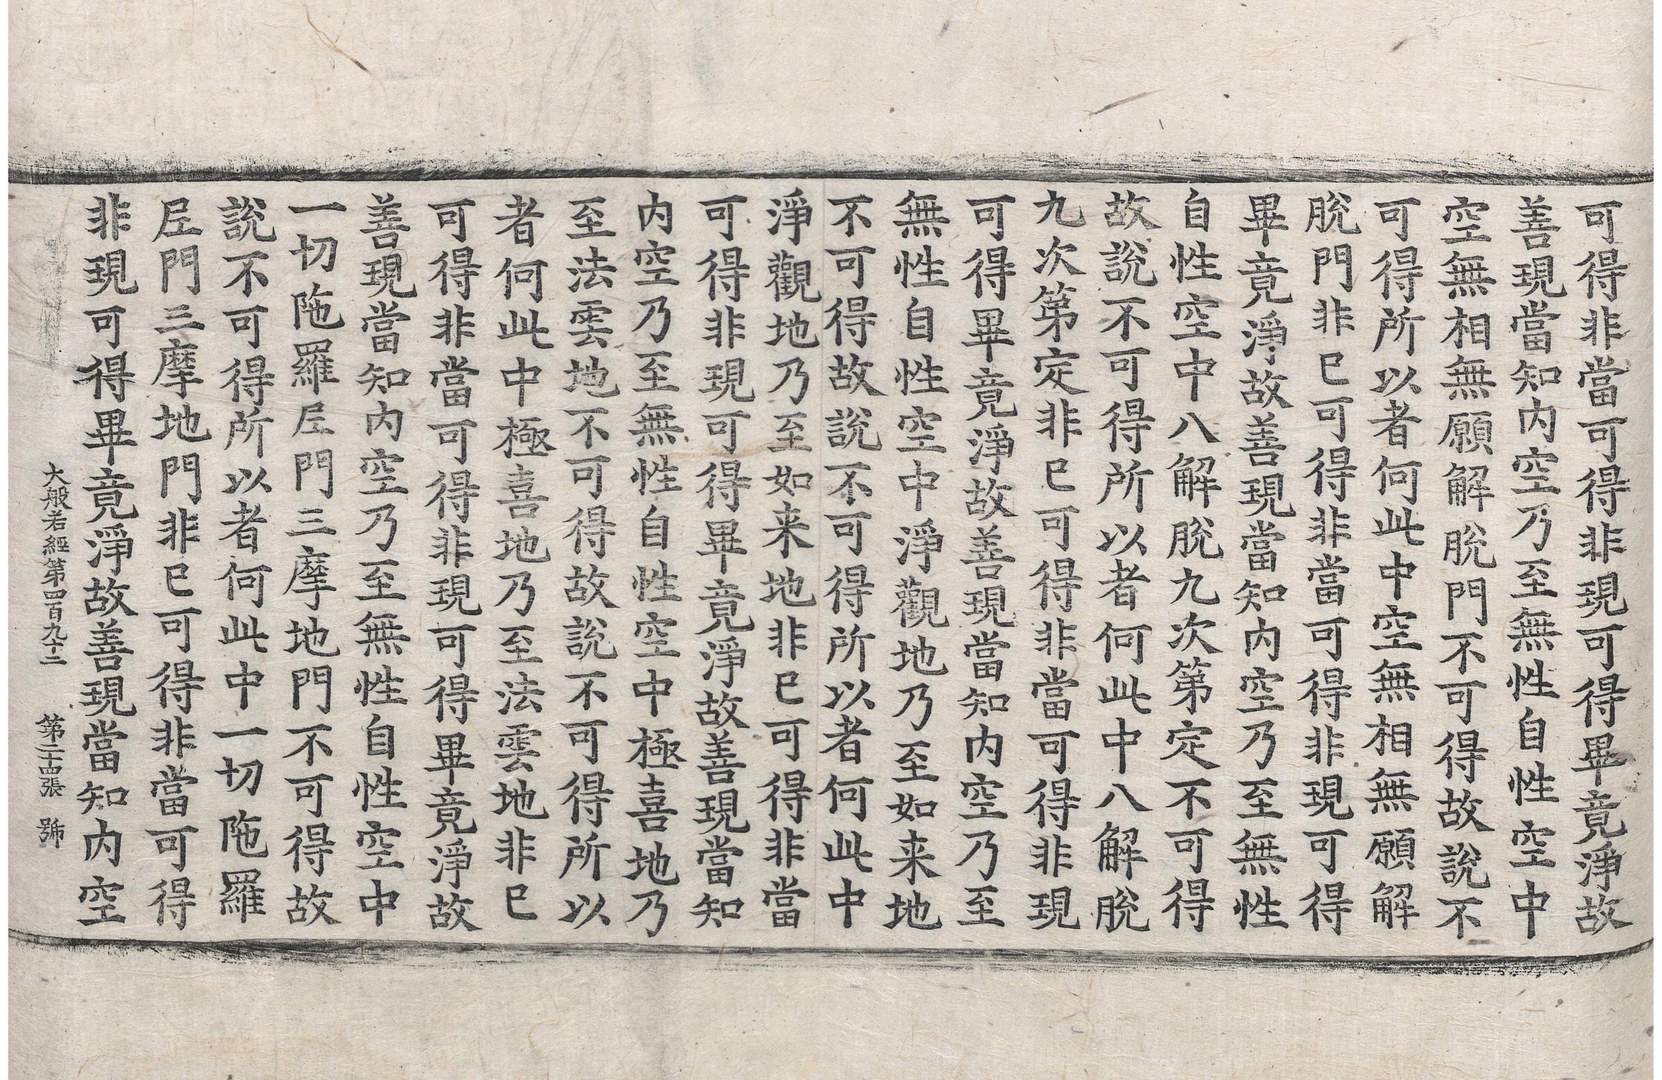 可得非當可得非現可得畢竟淨故
善現當知內空乃至無性自性空中
空無相無願解脫門不可得故說不
可得所以者何此中空無相無願解
脫門非已可得非當可得非現可得
畢竟淨故善現當知內空乃至無性
自性空中八解脫九次第定不可得
故說不可得所以者何此中八解脫
九次第定非已可得非當可得非現
可得畢竟淨故善現當知內空乃至
無性自性空中淨觀地乃至如来地
不可得故說不可得所以者何此中
淨觀地乃至如来地非已可得非當
可得非現可得畢竟淨故善現當知
內空乃至無性自性空中極喜地乃
至法雲地不可得故說不可得所以
者何此中極喜地乃至法雲地非已
可得非當可得非現可得畢竟淨故
善現當知內空乃至無性自性空中
一切陁羅尼門三摩地門不可得故
說不可得所以者何此中一切陁羅
尼門三摩地門非已可得非當可得
非現可得畢竟淨故善現當知內空
大般若經第四百九十二 第二十四張 號